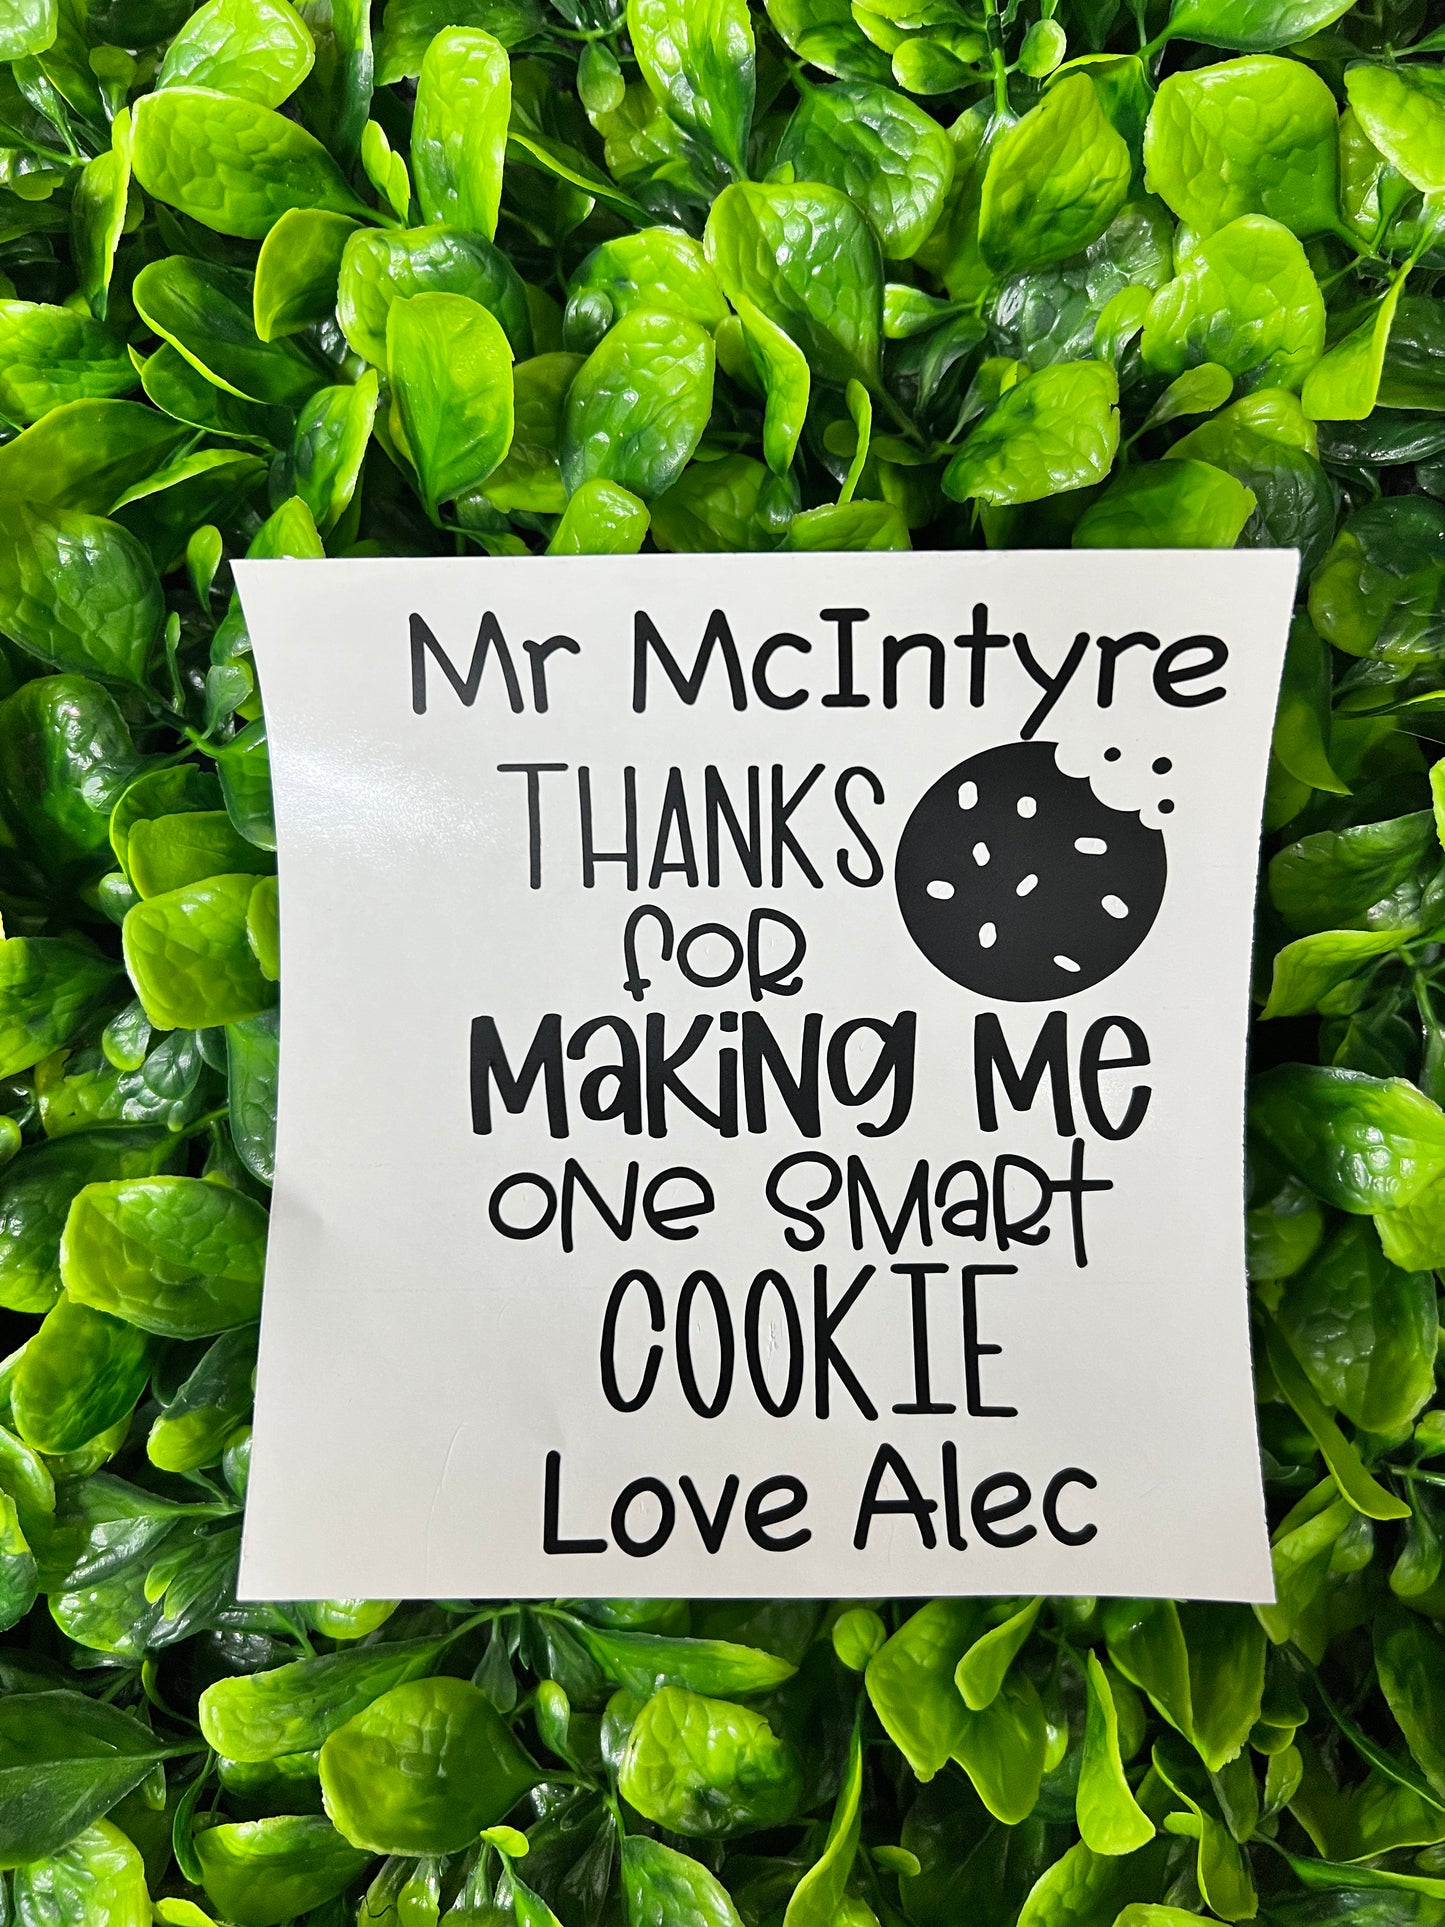 Mr McIntyre
THANKS
foR
MaKiNg Me
oNe SMaRt
COOKIE
Love Alec